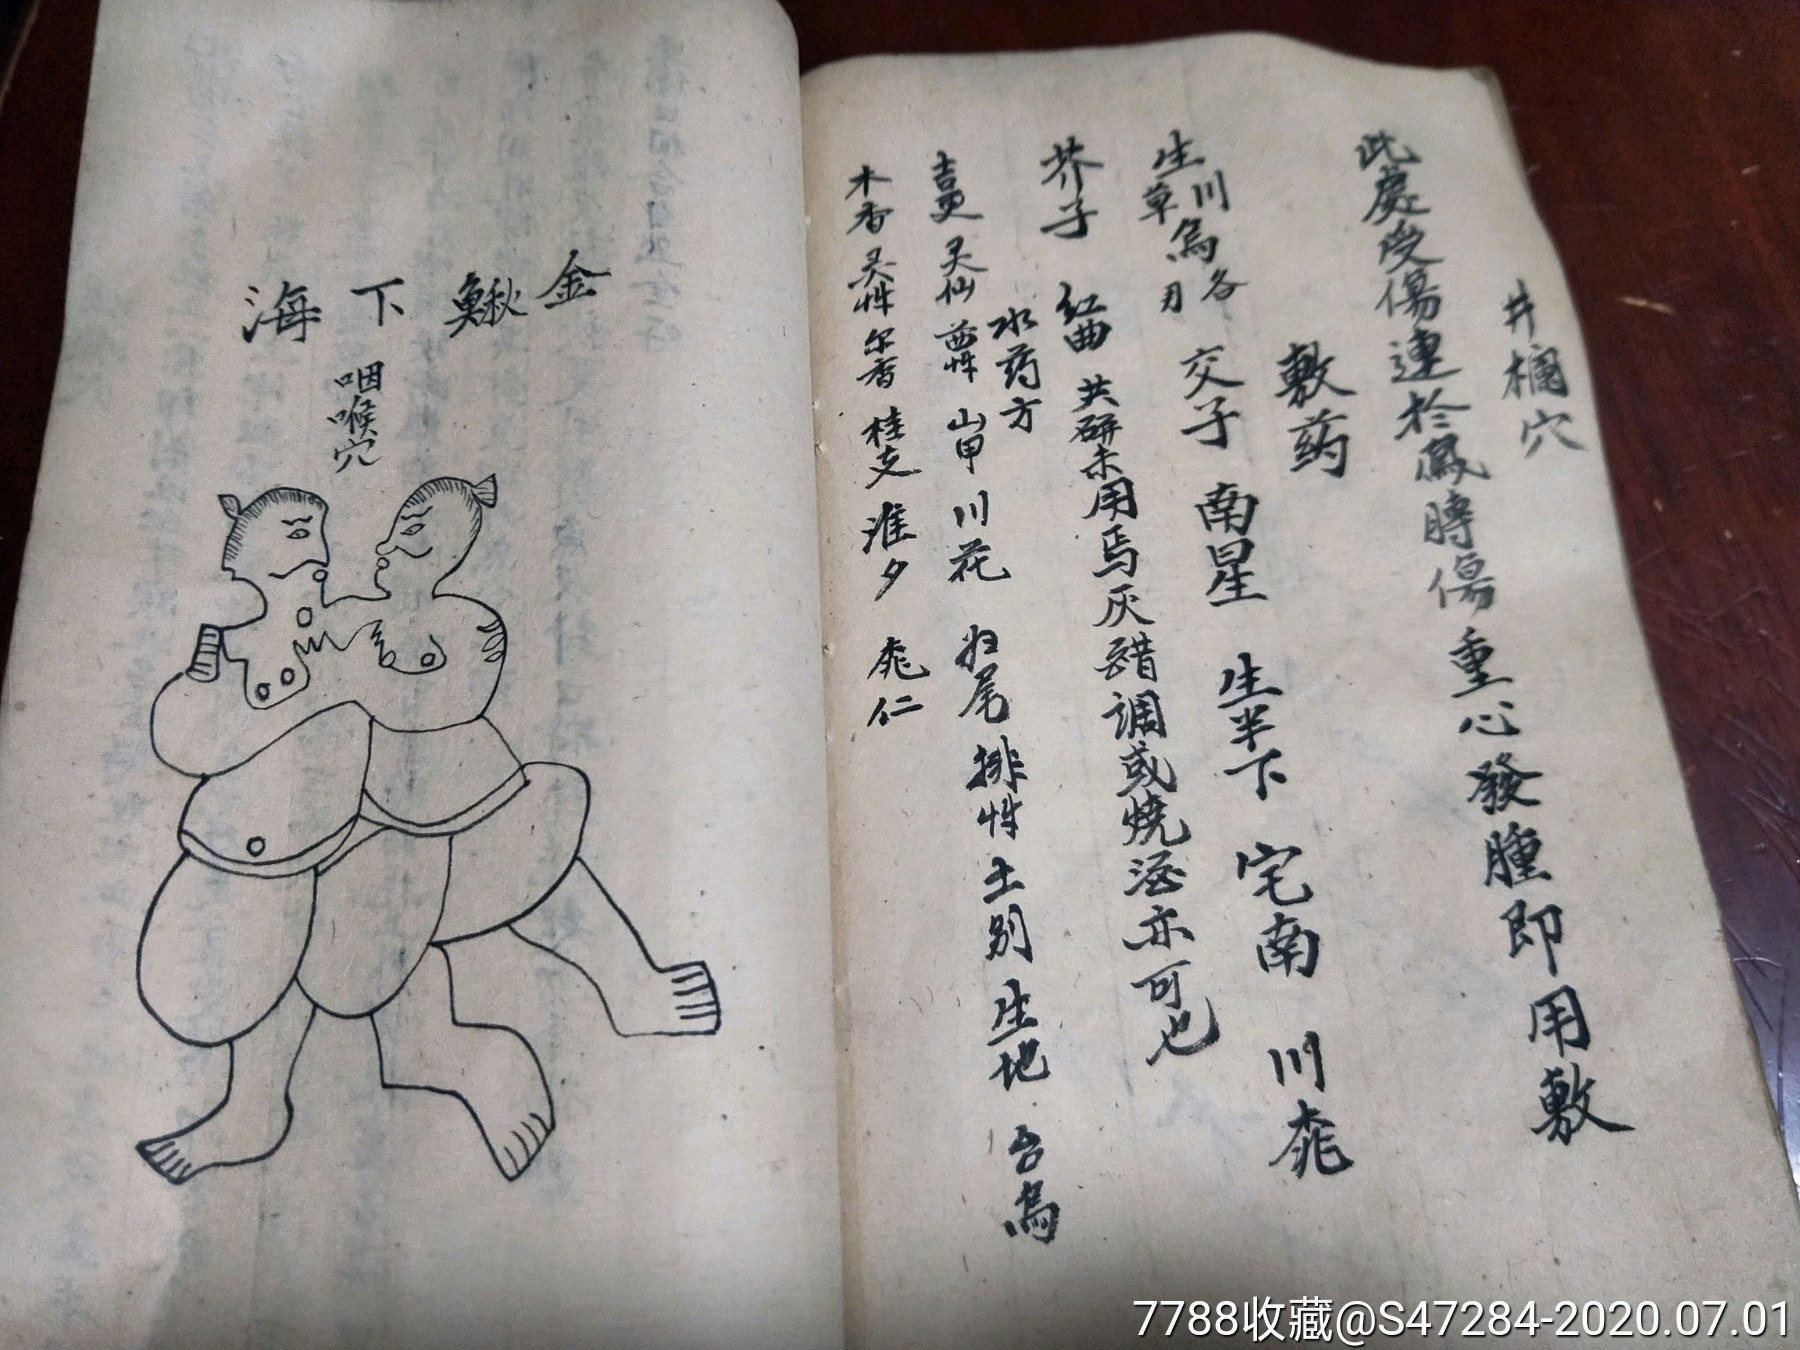 井欄穴
此處受傷連於鳳膊傷重心發腫即用敷
敷药
生川草烏各 交子 南星 生半下 宅南 川
芥子 红曲 共研末用焉灰醋调或燒酒亦可也
水药方
吉更 灵仙 山甲 川花 归尾 排性 土别 生地 台烏
木香 灵性 尔香 桂支 淮夕 仁
金鳅下海
咽喉穴
7788收藏@S47284-2020.07.01